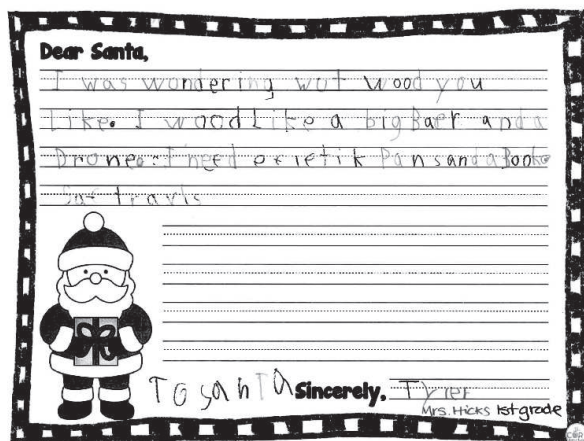 Dear Santa,
I was wondering wut wood you
like. I wood Like a big Baer and a
Drone. I need Pans and a Book
Saf travls
To santa Sincerely, Tyler
Mrs. Hicks 1st grade